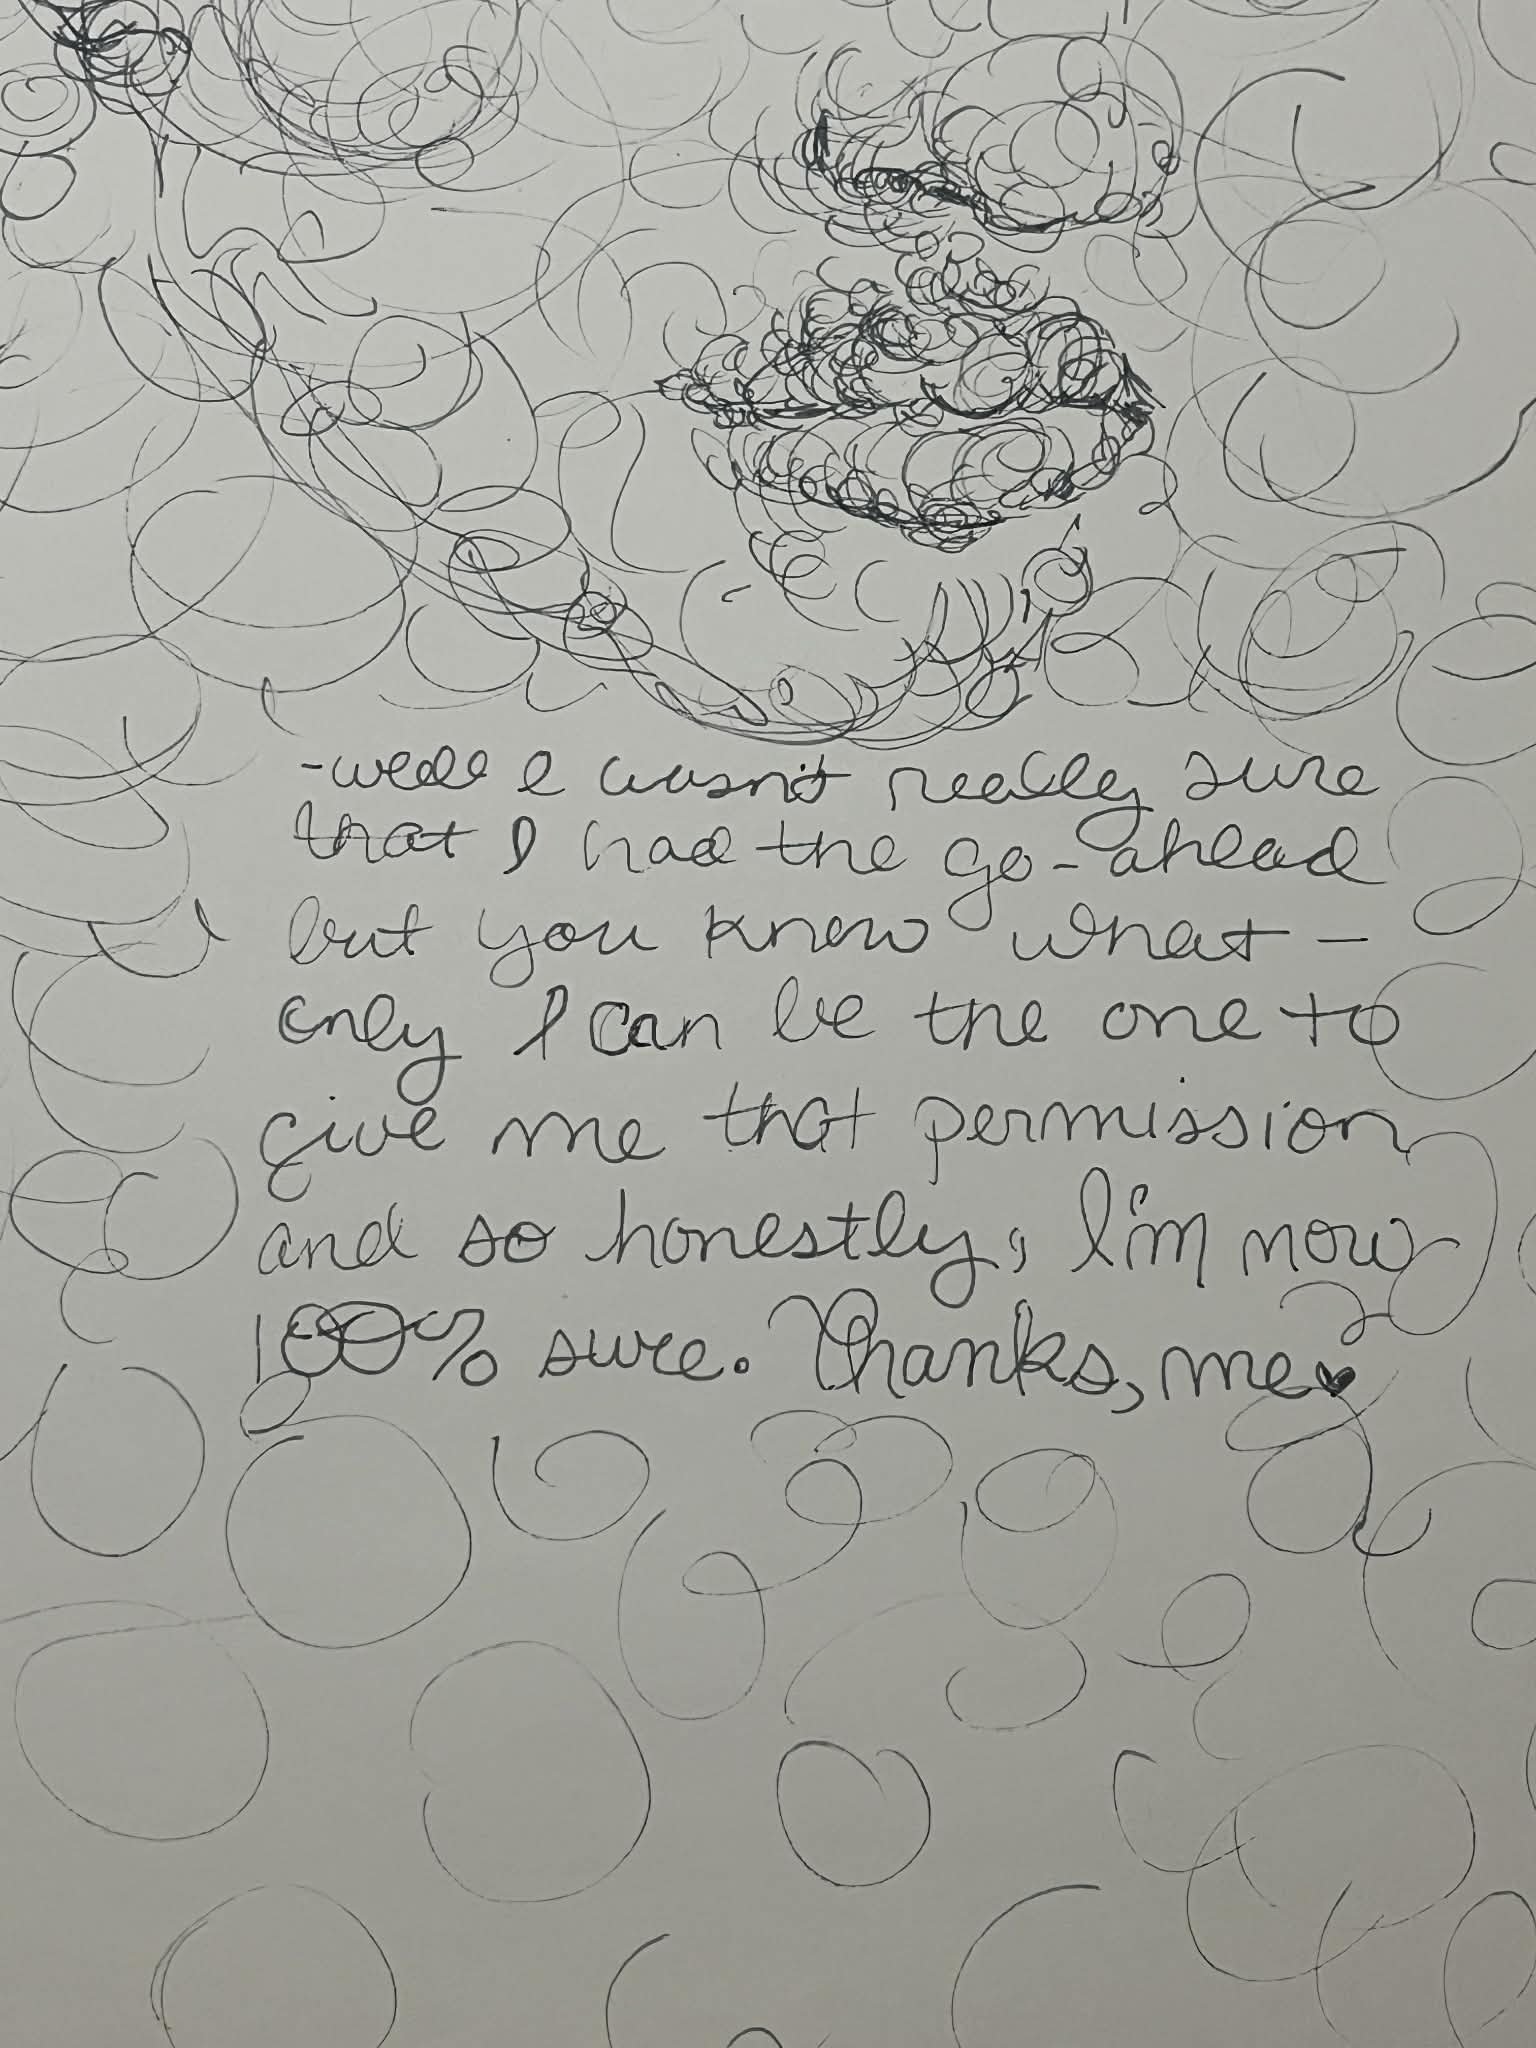 -well I wasn't really sure
that I had the go-ahead
but you know what -
only I can be the one to
give me that permission
and so honestly, I'm now
100% sure. Thanks, me♥